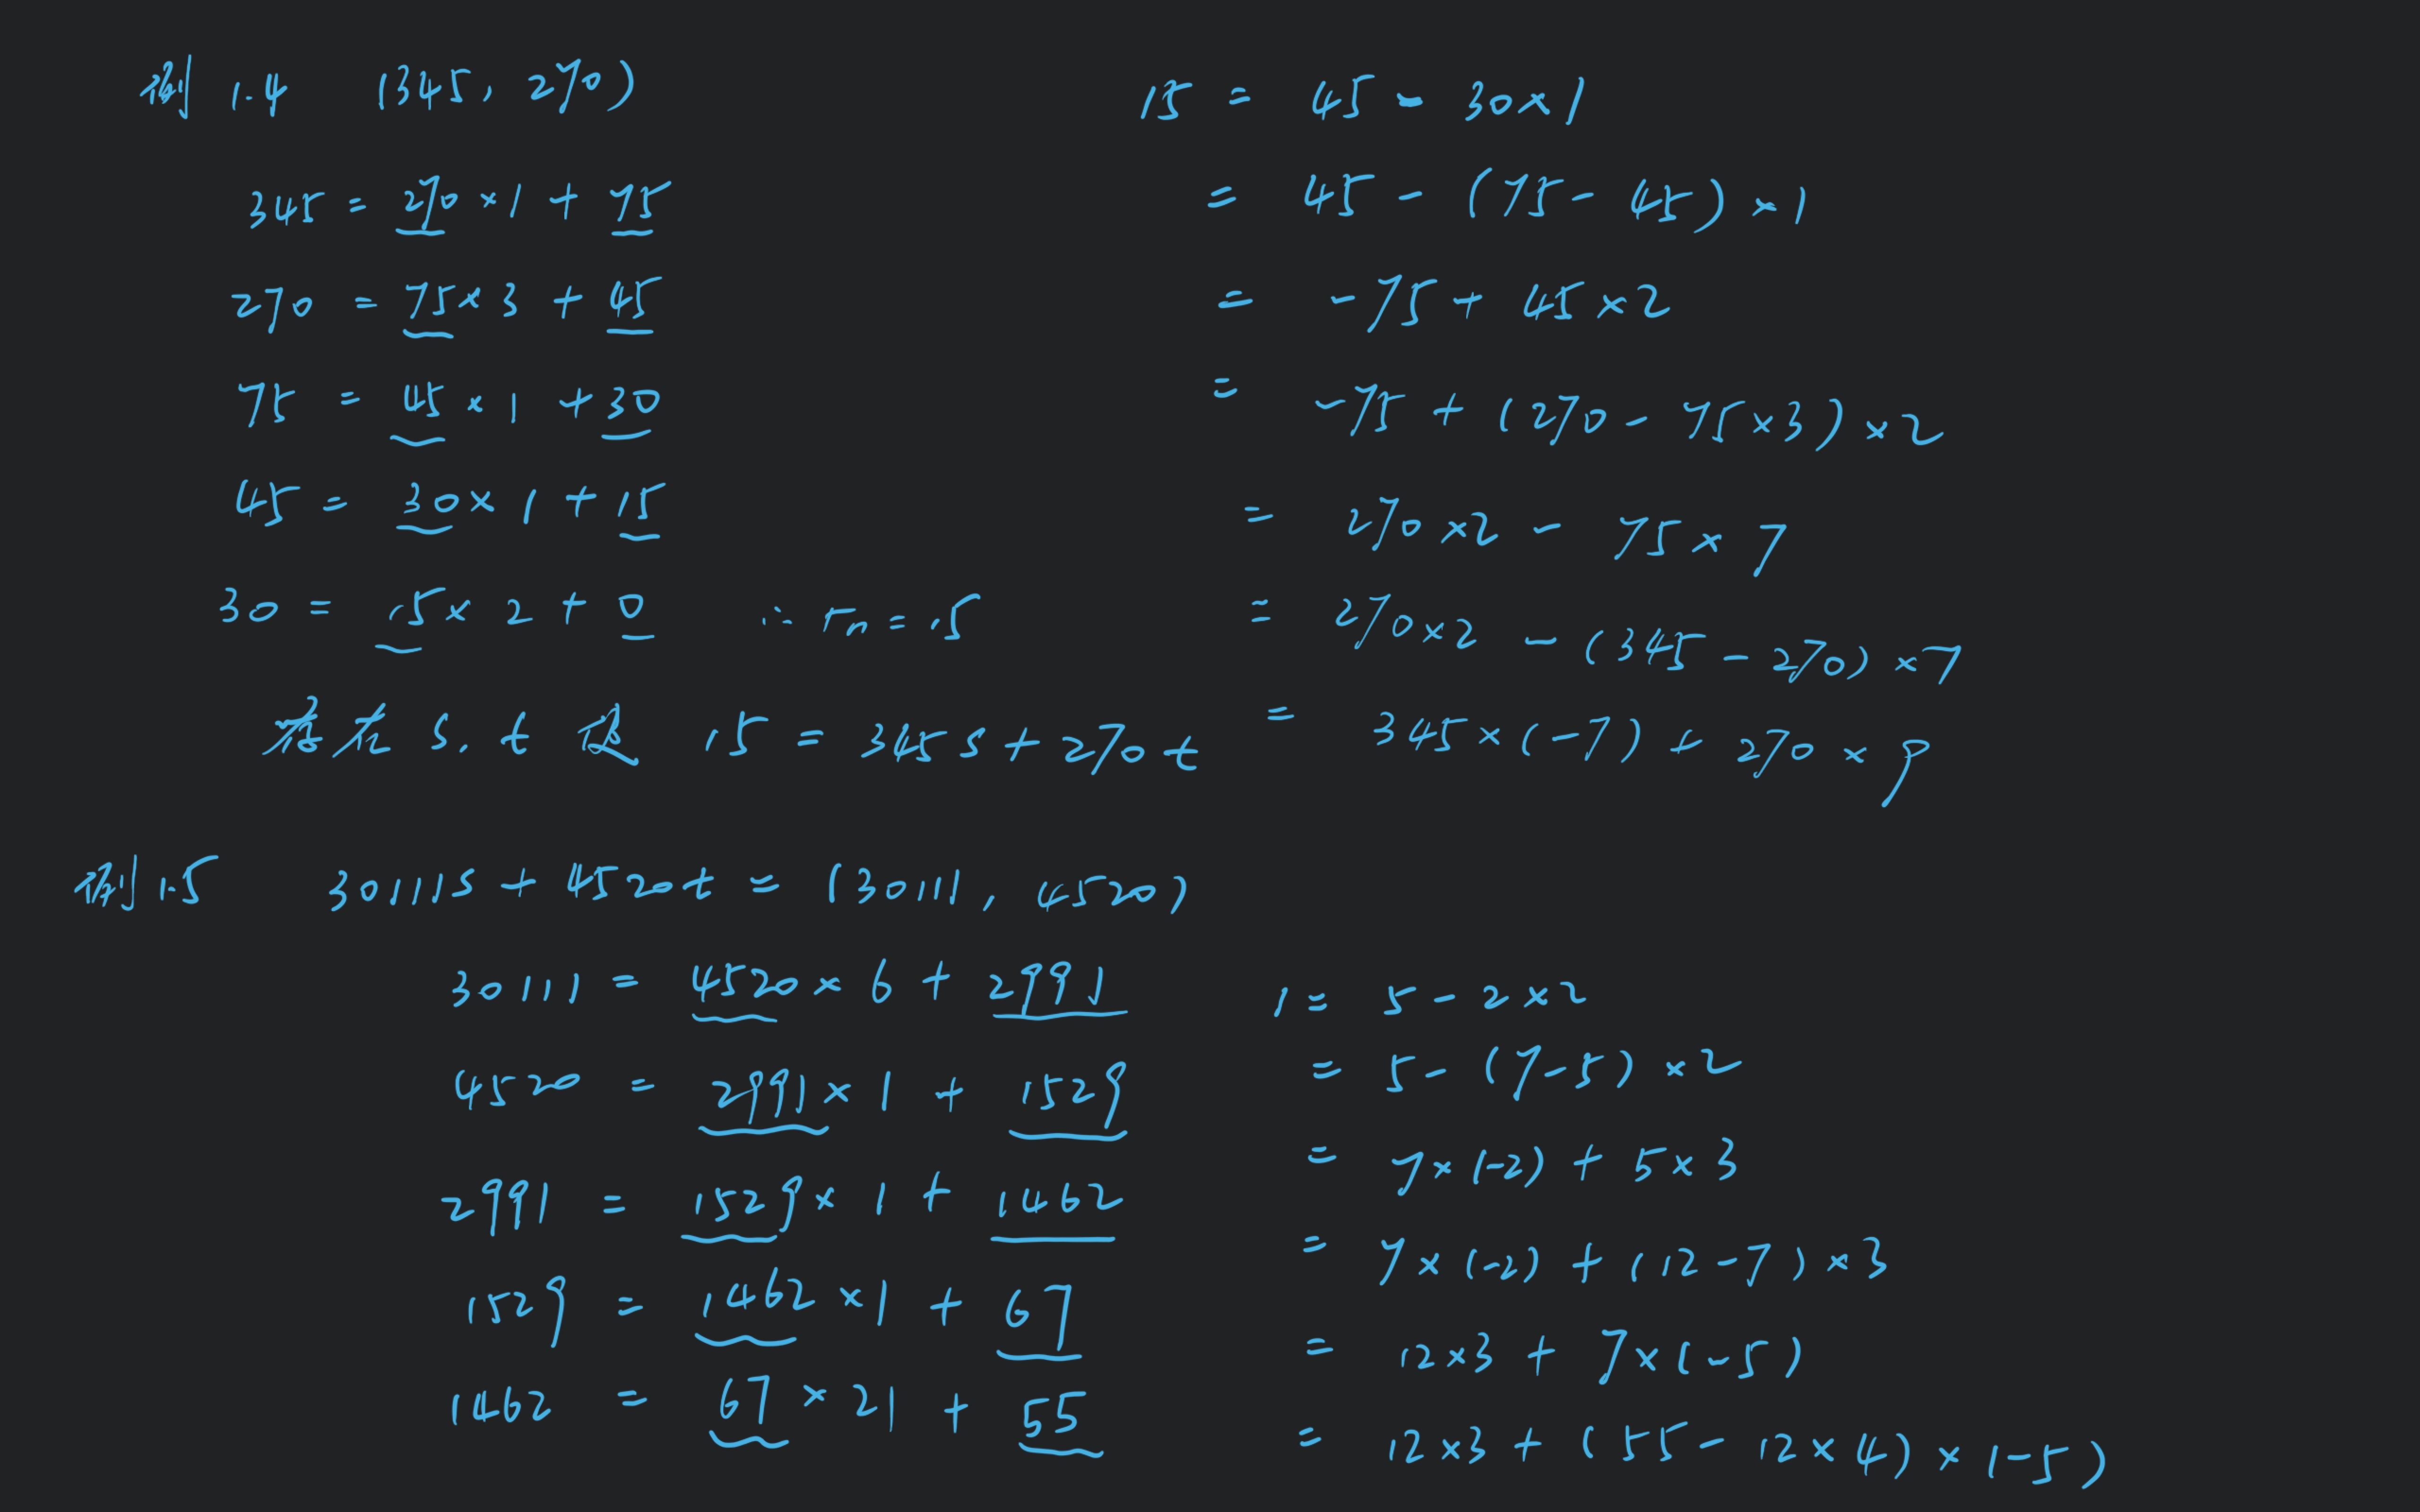 例 1.4 (345, 270)
345 = 270 × 1 + 75
270 = 75 × 3 + 45
75 = 45 × 1 + 30
45 = 30 × 1 + 15
30 = 15 × 2 + 0 ∴ rn = 15
s, t 使 15 = 345 s + 270 t
15 = 45 - 30 × 1
= 45 - (75 - 45) × 1
= -75 + 45 × 2
= -75 + (270 - 75 × 3) × 2
= 270 × 2 - 75 × 7
= 270 × 2 - (345 - 270) × 7
= 345 × (-7) + 270 × 9
例 1.5 30111 s + 4520 t = (30111, 4520)
30111 = 4520 × 6 + 2991
4520 = 2991 × 1 + 1529
2991 = 1529 × 1 + 1462
1529 = 1462 × 1 + 67
1462 = 67 × 21 + 55
1 = 5 - 2 × 2
= 5 - (7 - 5) × 2
= 7 × (-2) + 5 × 3
= 7 × (-2) + (12 - 7) × 3
= 12 × 3 + 7 × (-5)
= 12 × 3 + (55 - 12 × 4) × (-5)